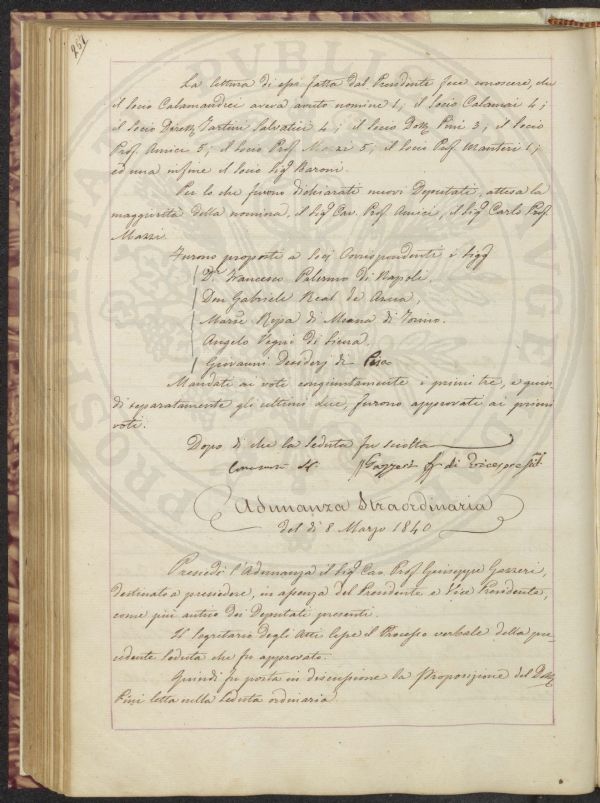 262
La lettura di essi fatta dal Presidente fece conoscere, che
il Socio Calamandrei aveva avuto nomine 1; il Socio Calamai 4;
il Socio Dirett. Tartini Salvatici 4; il Socio Dott. Pini 3; il Socio
Prof. Amici 5; il Socio Prof. Mazzi 5; il Socio Prof. Manteri 1;
ed una infine il Socio Sig. Baroni.
Per lo che furono dichiarati nuovi Deputati, attesa la
maggiorità della nomina, il Sig. Cav. Prof. Amici, il Sig. Carlo Prof.
Mazzi.
Furono proposti a Soci Corrispondenti i Sigg.
Dr. Francesco Palermo di Napoli.
Don Gabriele Real de Arua,
March. Ripa di Meana di Torino.
Angelo Vegni di Siena.
Giovanni Desiderj di Pisa
Mandati ai voti congiuntamente i primi tre, e quin
di separatamente gli ultimi due, furono approvati ai primi
voti.
Dopo di che la Seduta fu sciolta
Gazzeri ff. di Vicepresid.
Adunanza Straordinaria
del dì 8 Marzo 1840
Presiedè l'Adunanza il Sig. Cav. Prof. Giuseppe Gazzeri,
destinato a presiedere, in assenza del Presidente e Vice Presidente,
come più antico dei Deputati presenti.
Il Segretario degli Atti lesse il Processo verbale della pre
cedente Seduta che fu approvato.
Quindi fu posta in discussione la Proposizione del Dott.
Pini letta nella Seduta ordinaria